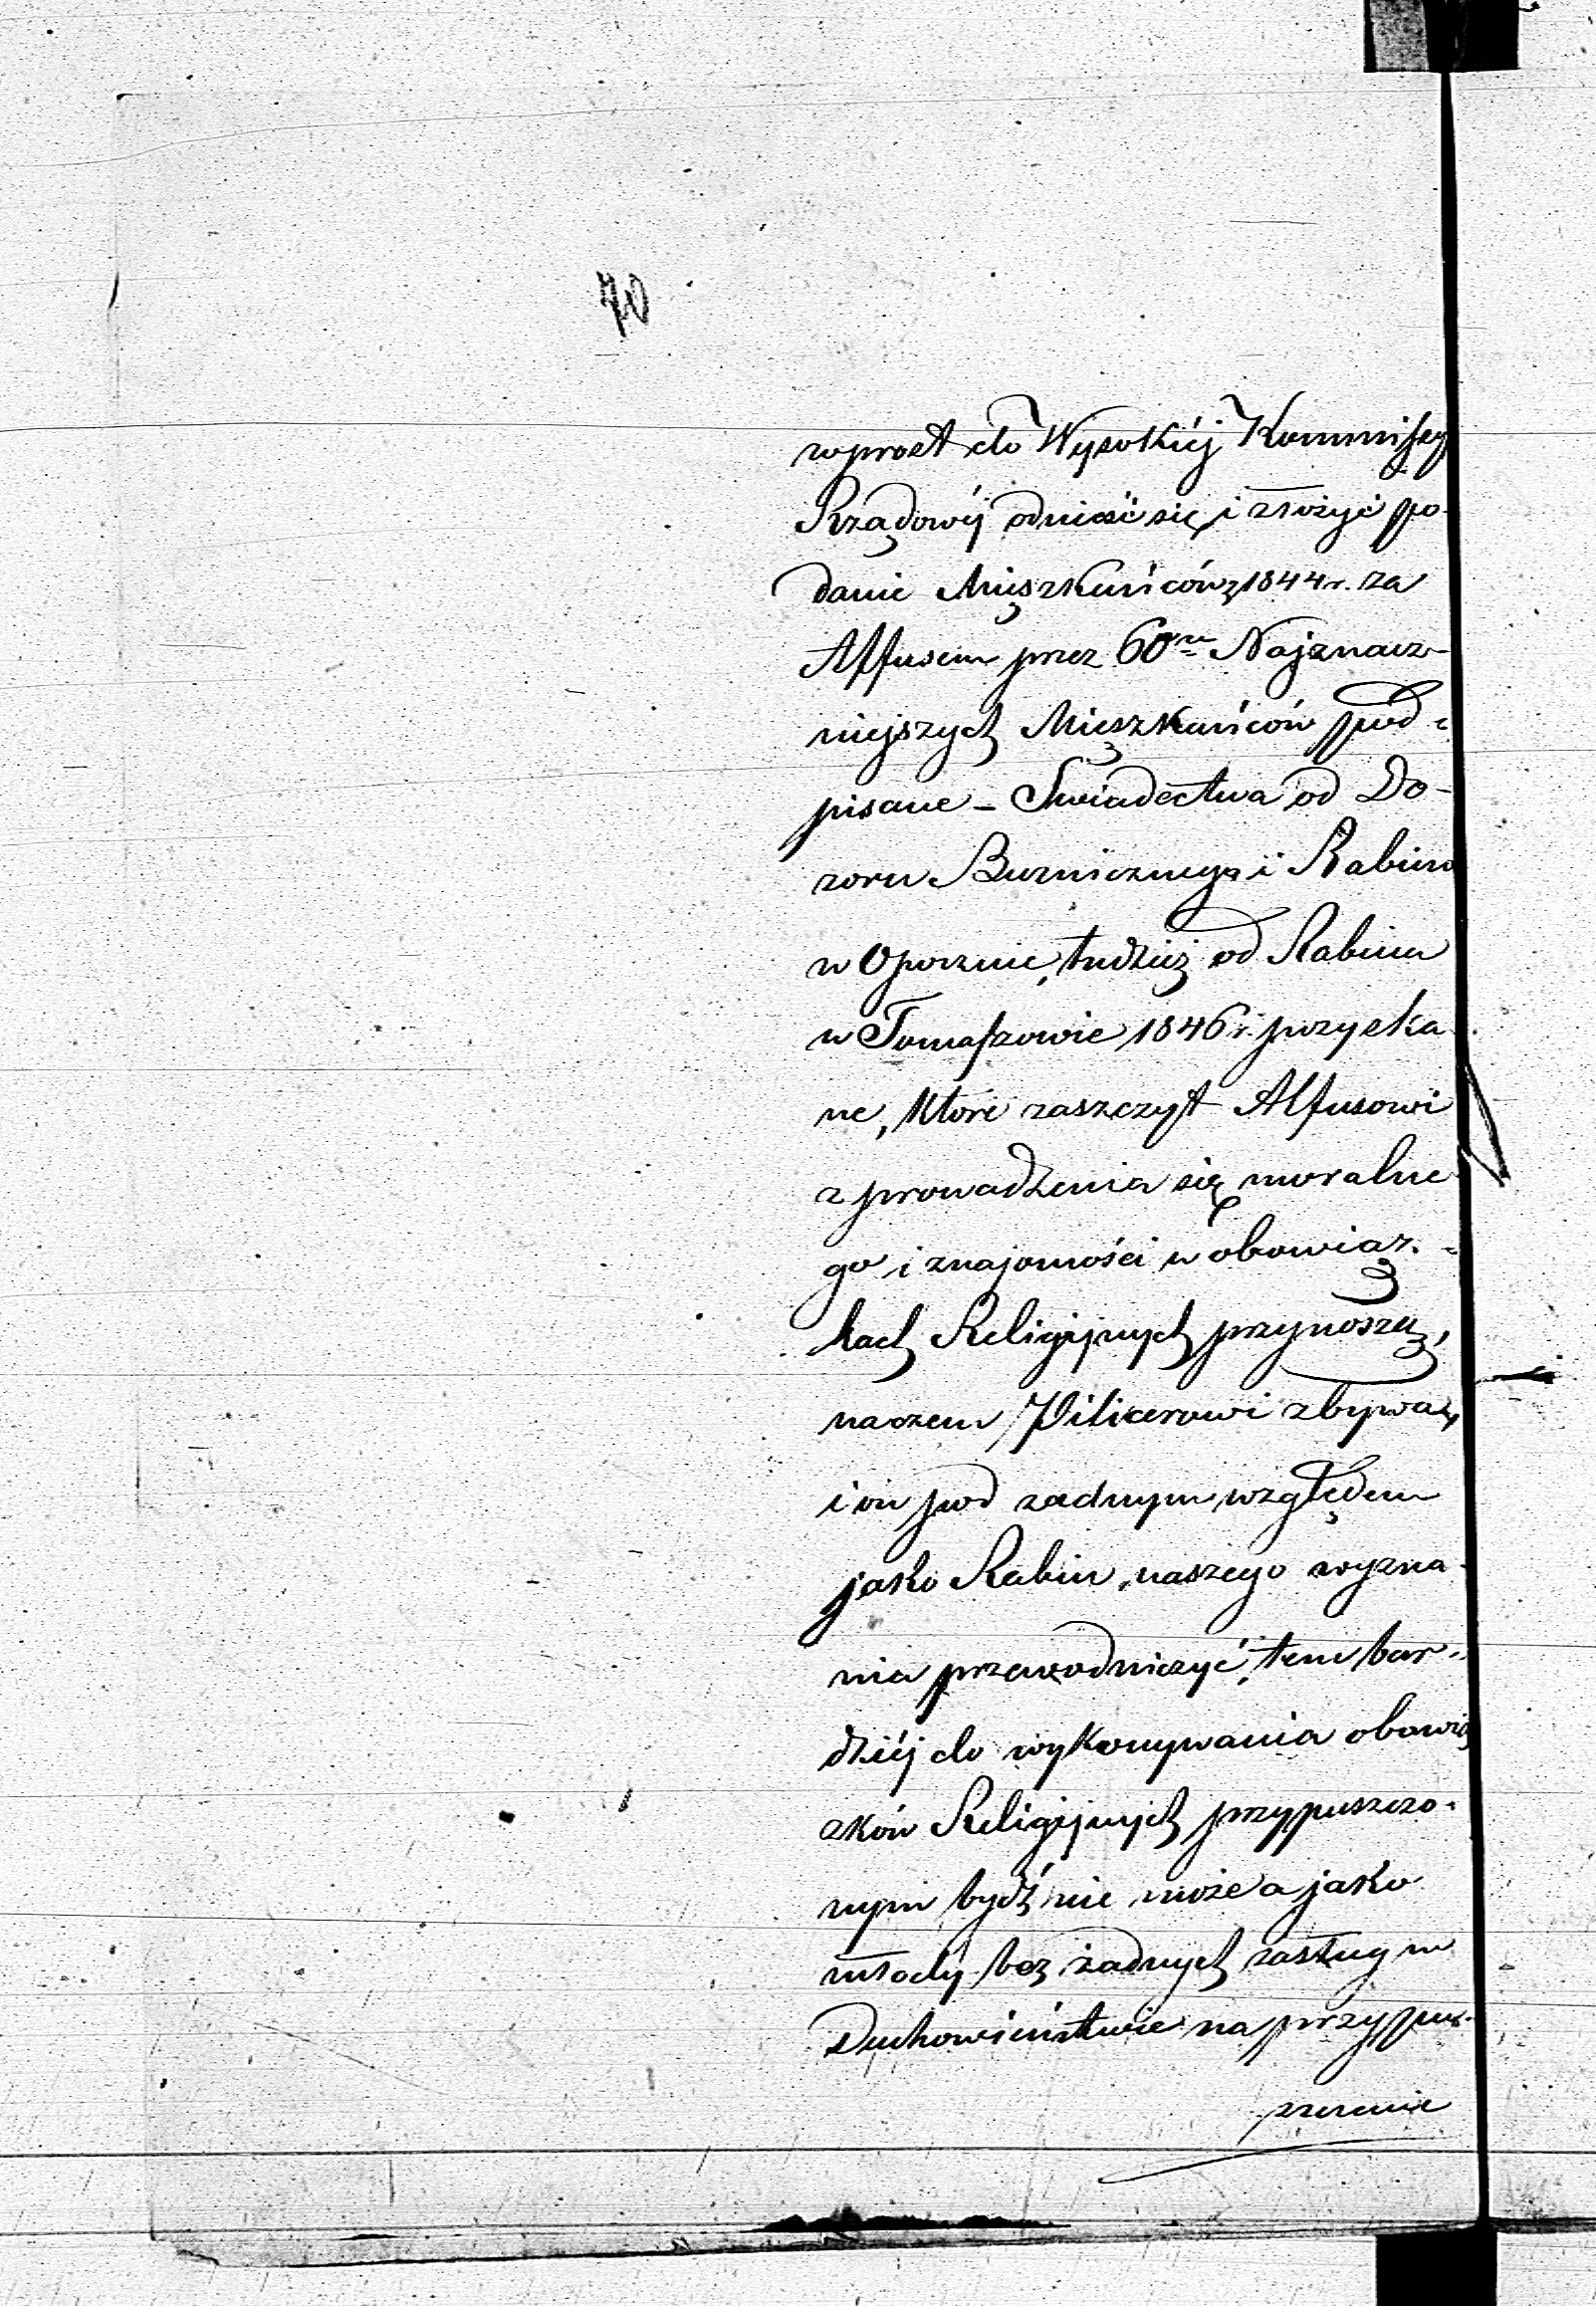 70
wprost do Wysokiéj Kommissy
Rządowéj odnieść się i złożyć po-
danie Mięszkańców z 1844 r. za
Alfusem przez 60ciu Najznacz-
niejszych Mięszkańców pod-
pisane – Swiadectwa od Do-
zoru Bużnicznego i Rabina
w Opocznie, tudzież od Rabina
w Tomaszowie 1846 r. pozyska
ne, które zaszczyt Alfusowi
z prowadzenia się moralne
go i znajomości w obowiąz-
kach Religijnych przynoszą,
naczem Pilicerowi zbywa,
i on pod żadnym względem
jako Rabin, naszego wyzna-
nia przewodniczyć, tem bar-
dziéj do wykonywania obowią
zków Religijnych przypuszczo-
nym bydź nie może a jako
młody bez żadnych zasług w
Duchowieństwie na przypus-
zczenie